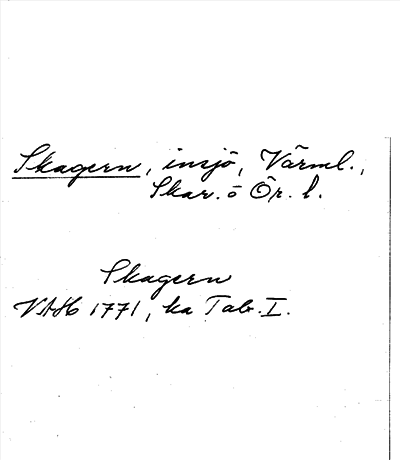 Skagern, insjö, Värml.,
Skar. o Ör. l.
Skagern
VAH 1771, ka Tab. I.